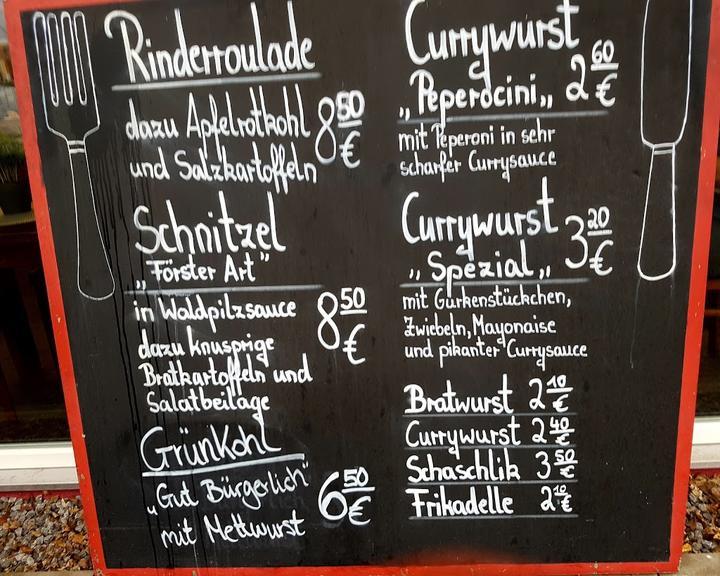 Rinderroulade
dazu Apfelrotkohl
und Salzkartoffeln
8 50 €
Schnitzel
„Förster Art"
in Waldpilzsauce
dazu knusprige
Bratkartoffeln und
Salatbeilage
8 50 €
Grünkohl
„Gut Bürgerlich"
mit Mettwurst
6 50 €
Currywurst
„Peperocini„
2 60 €
mit Peperoni in sehr
scharfer Currysauce
Currywurst
„Spezial„
3 20 €
mit Gurkenstückchen,
Zwiebeln, Mayonaise
und pikanter Currysauce
Bratwurst 2 10 €
Currywurst 2 40 €
Schaschlik 3 50 €
Frikadelle 2 10 €